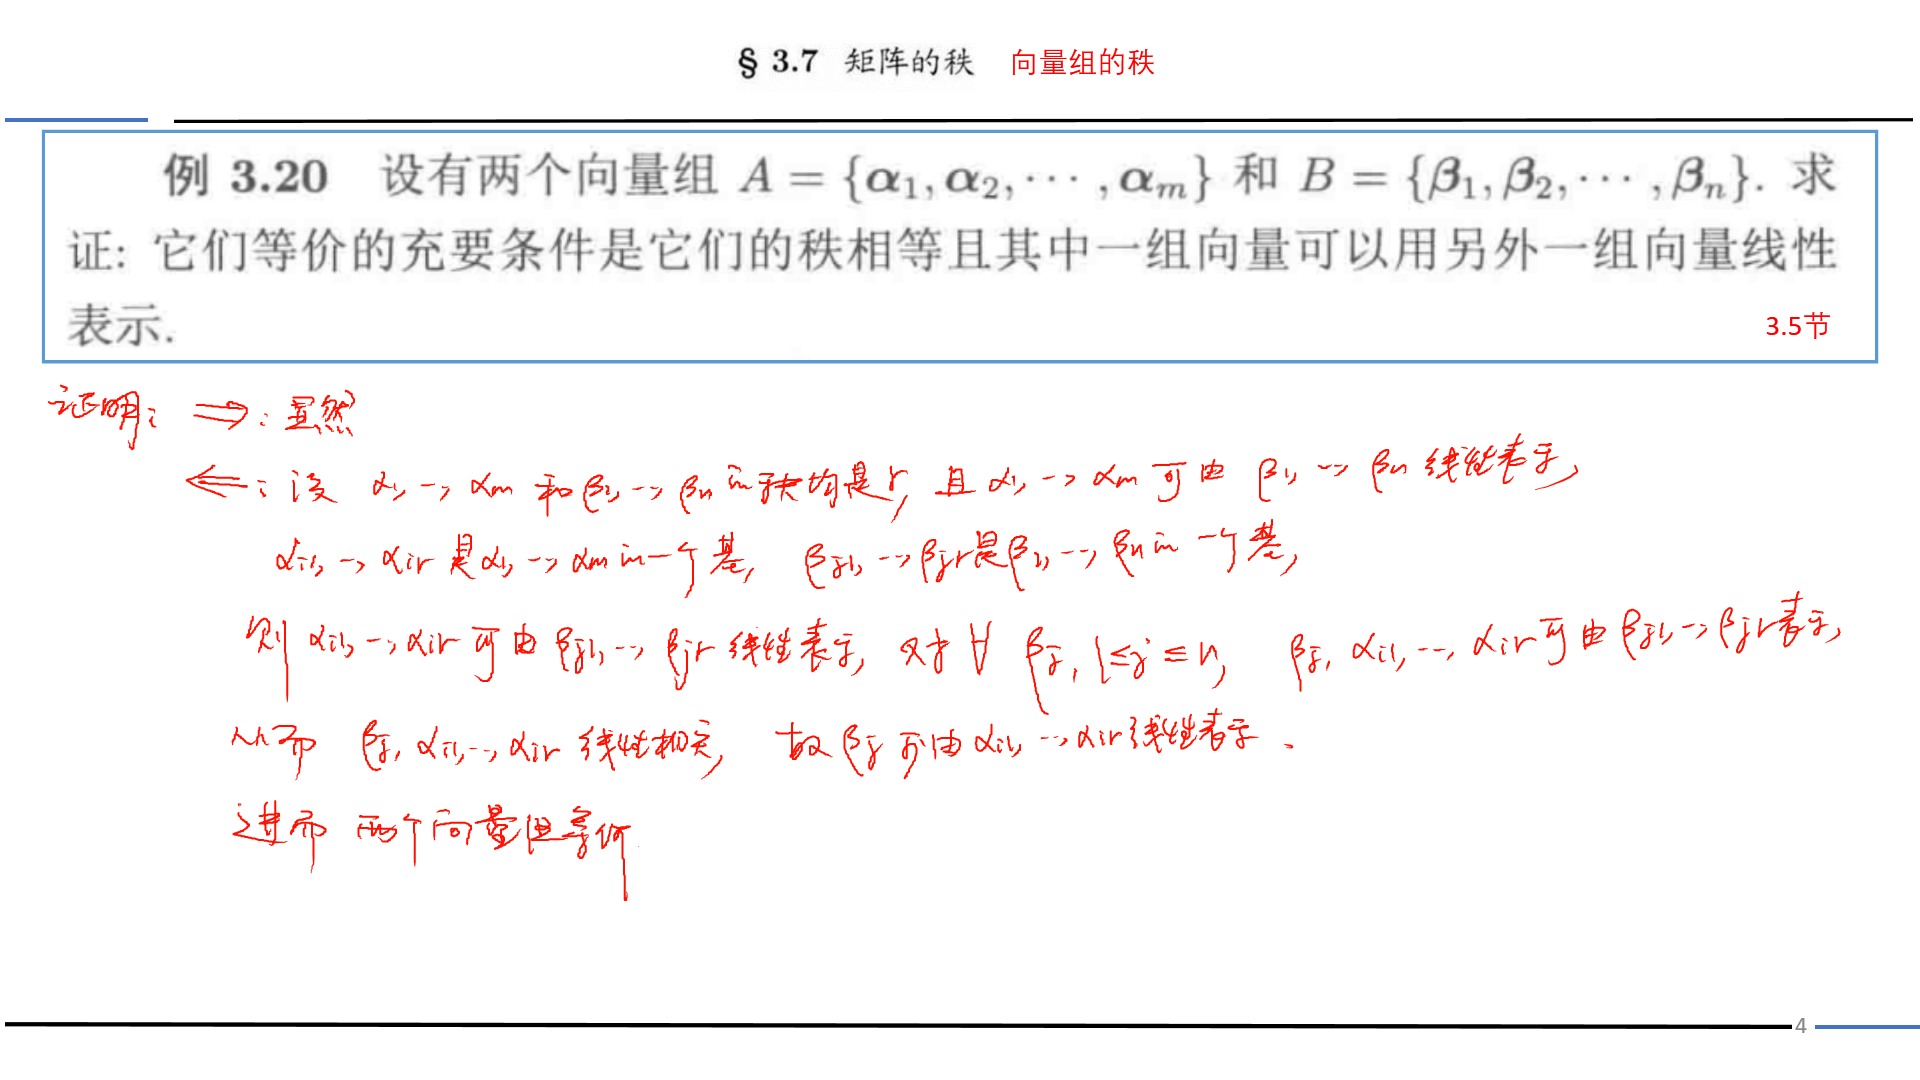 § 3.7 矩阵的秩 向量组的秩
例 3.20 设有两个向量组 A = {α₁, α₂, ⋯ , αₘ} 和 B = {β₁, β₂, ⋯ , βₙ}. 求
证: 它们等价的充要条件是它们的秩相等且其中一组向量可以用另外一组向量线性
表示.
3.5节
证明: ⇒: 显然
⇐: 设 α₁, ⋯, αₘ 和 β₁, ⋯, βₙ 的秩均是r, 且 α₁, ⋯, αₘ 可由 β₁, ⋯, βₙ 线性表示,
αi₁, ⋯, αir 是 α₁, ⋯, αₘ 的一个基, βj₁, ⋯, βjr 是 β₁, ⋯, βₙ 的一个基,
则 αi₁, ⋯, αir 可由 βj₁, ⋯, βjr 线性表示, 对于 ∀ βj, 1≤j≤n, βj, αi₁, ⋯, αir 可由 βj₁, ⋯, βjr 表示,
从而 βj, αi₁, ⋯, αir 线性相关, 故 βj 可由 αi₁, ⋯, αir 线性表示.
进而 两个向量组等价
4